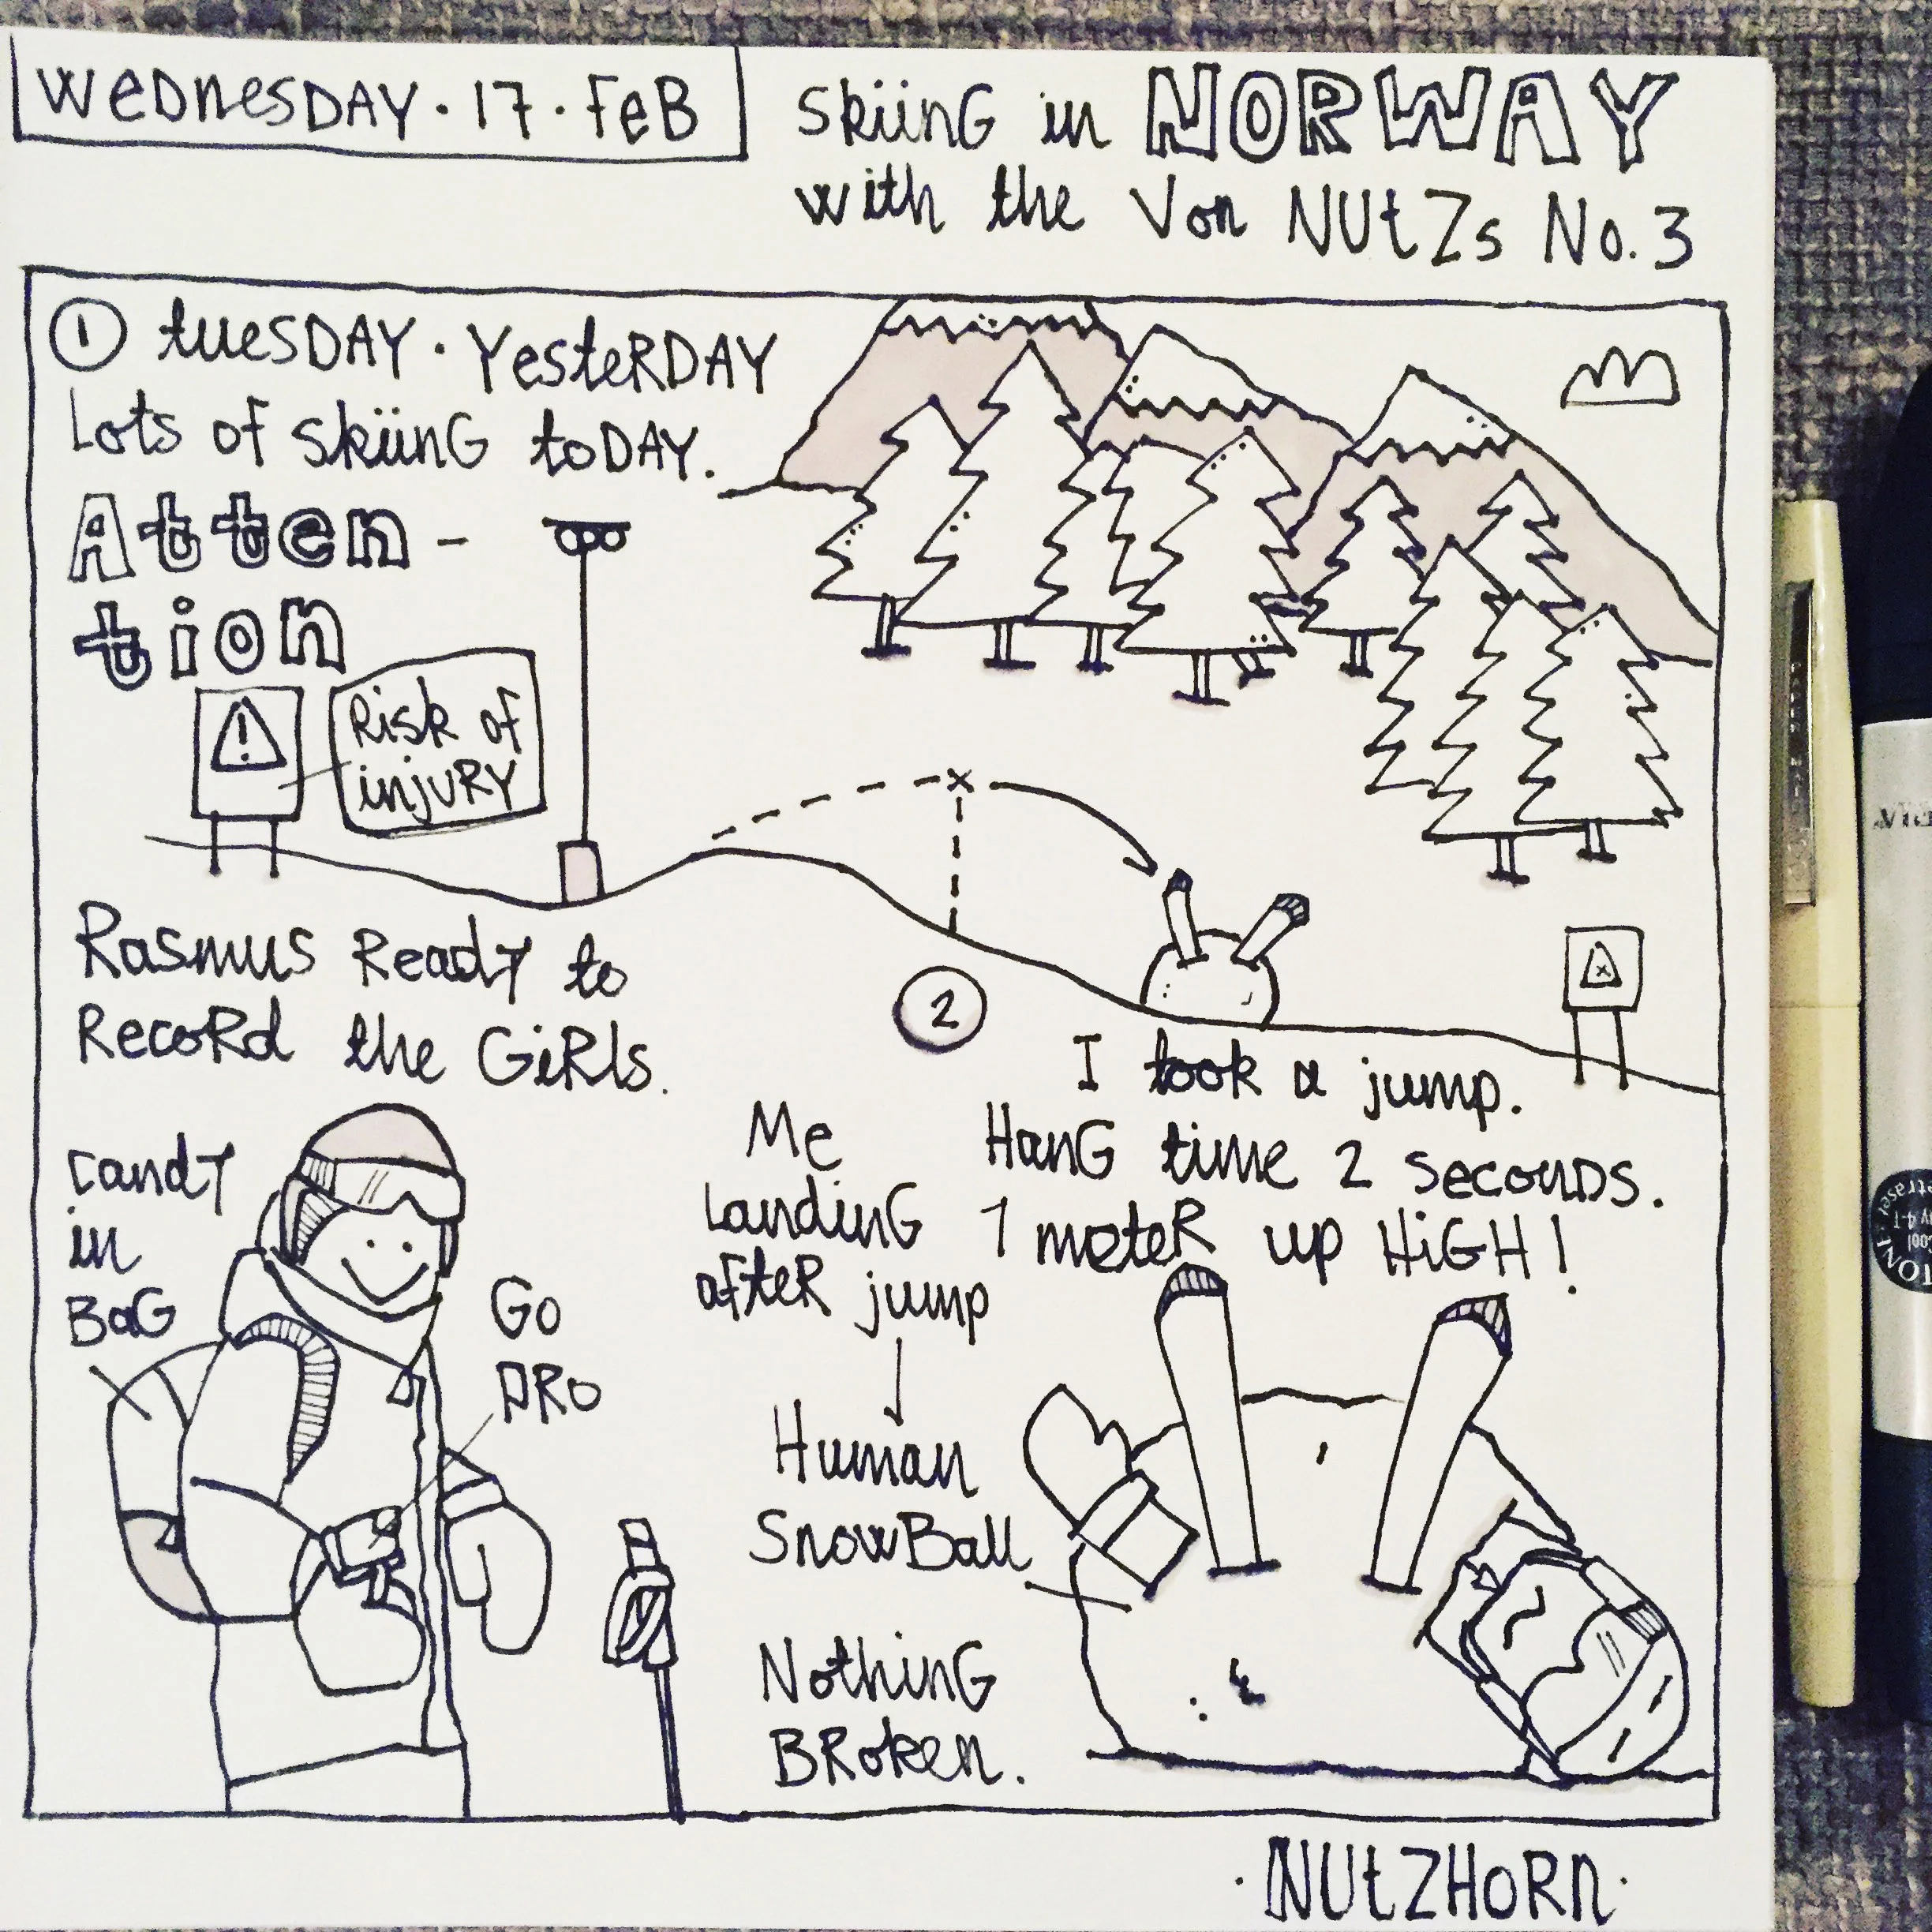 WEDNESDAY · 17 · FEB
Skiing in NORWAY
with the Von NUtZs No. 3
1 tuesDAY · YesteRDAY
Lots of skiing toDAY.
Atten-
tion
Risk of
injuRY
Rasmus Ready to
Record the GiRls.
2
I took a jump.
Hang time 2 seconds.
1 meteR up HiGH!
Me
Landing
after jump
Candy
in
BaG
Go
PRO
Human
SnowBall
Nothing
BRoken.
· NUtZHORn ·